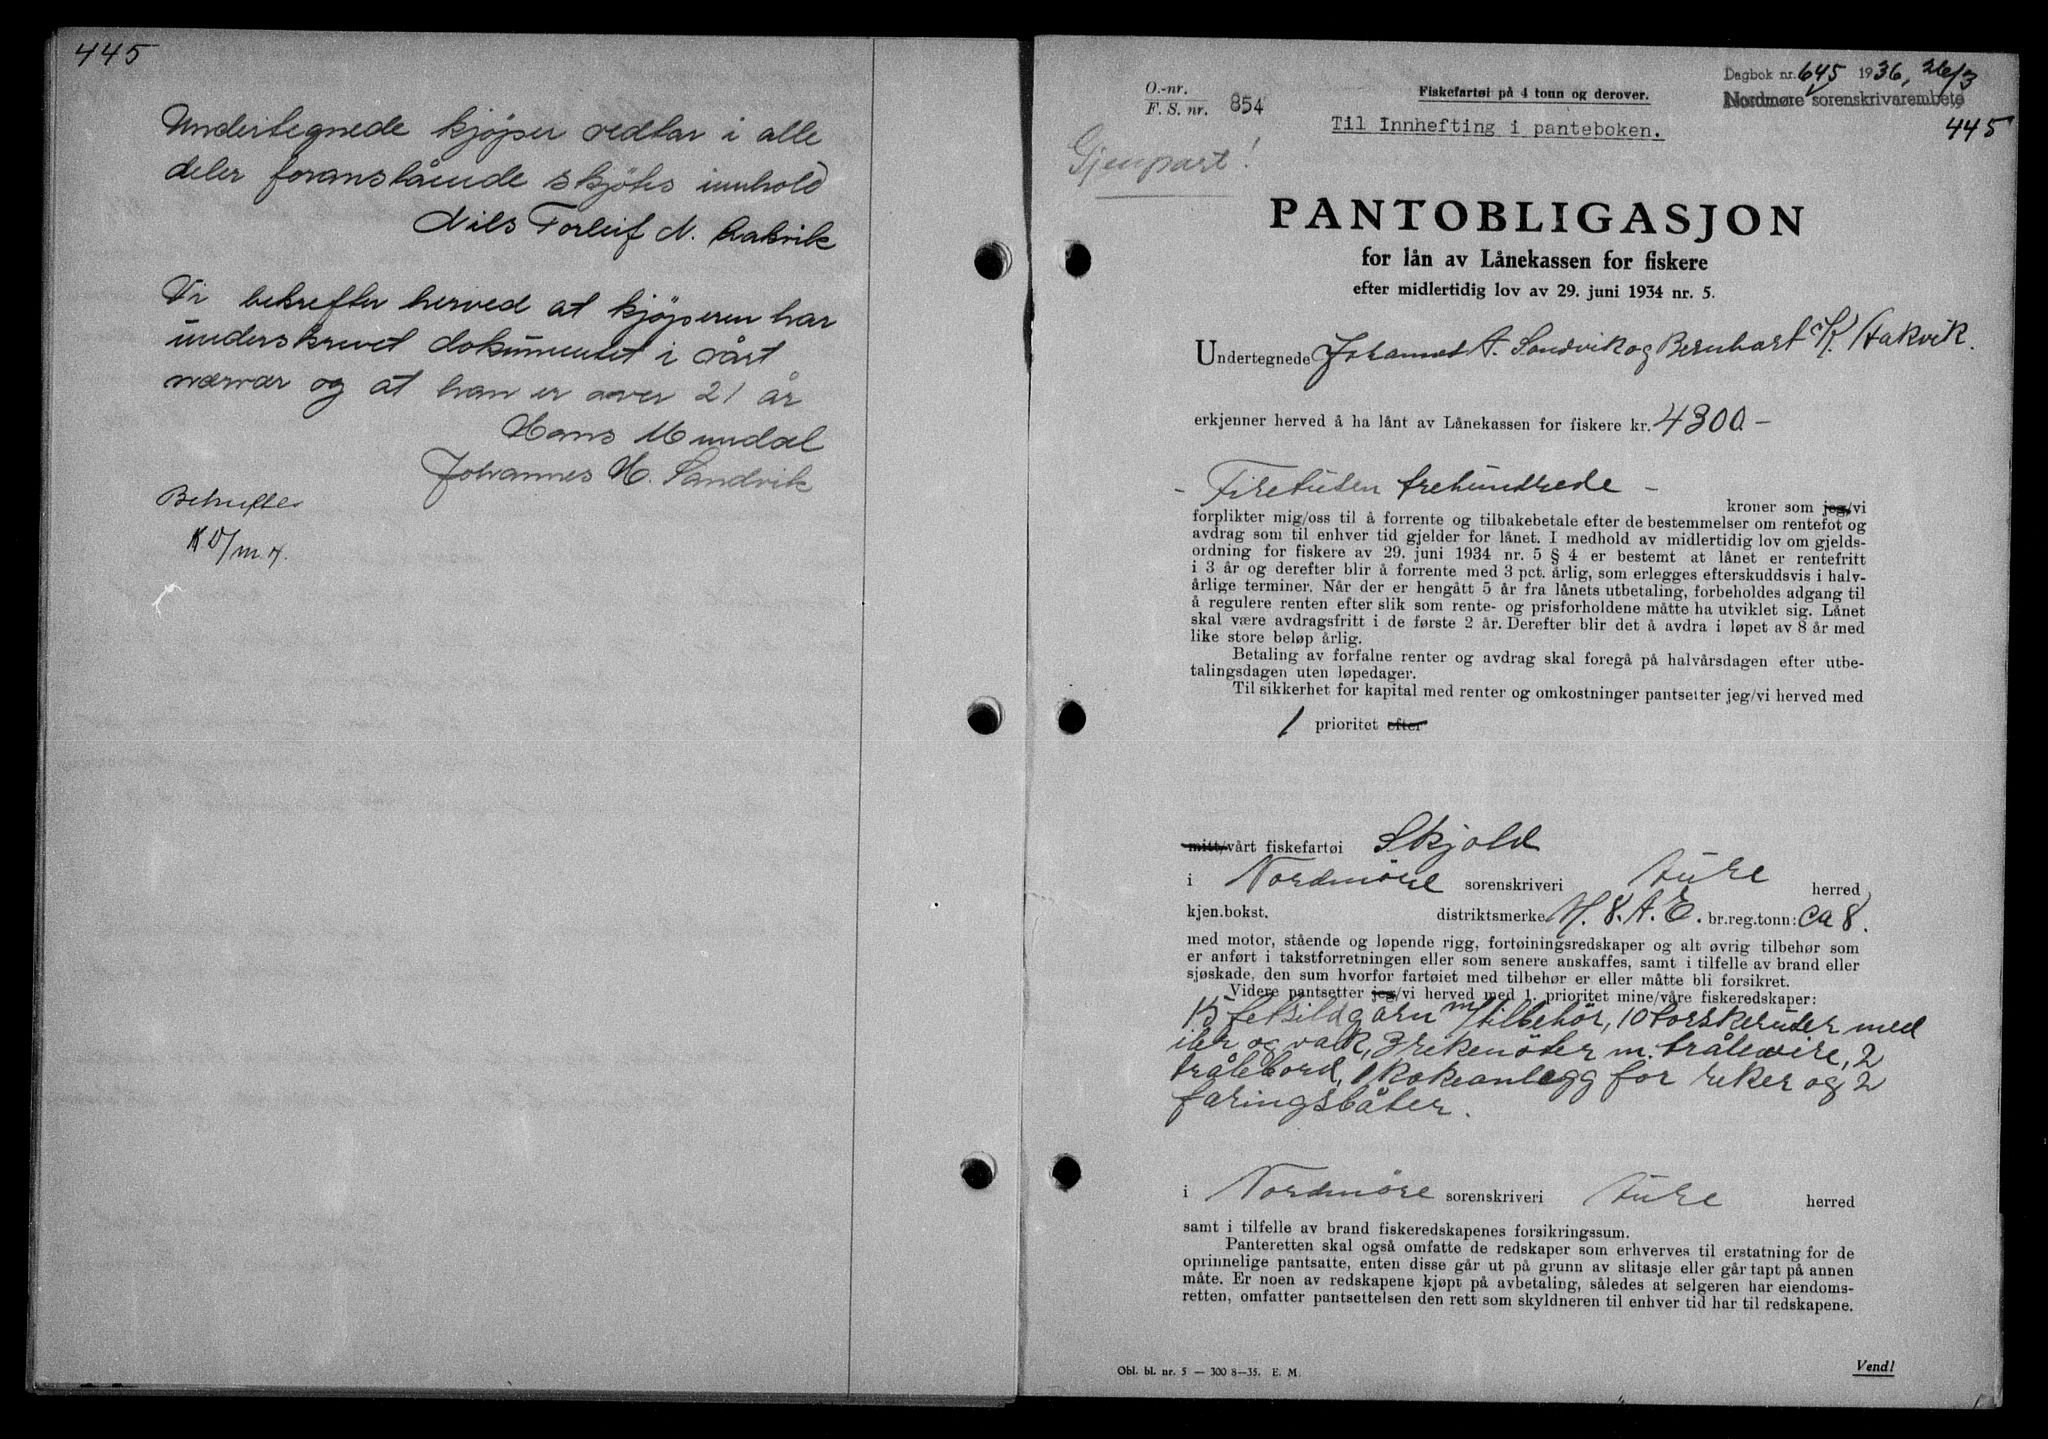 445
Undertegnede kjøper vedtar i alle
deler foranstående skjøtes innhold
Nils Torleif N.
Vi bekrefter herved at kjøperen har
underskrevet dokumentet i vårt
nærvær og at han er over 21 år
Hans Mundal
Johannes H. Sandvik
Bekreftes
Dagbok nr. 645 1936, 26/3
Nordmøre sorenskrivarembete
445
O.-nr.
F. S. nr. 854
Fiskefartøi på 4 tonn og derover.
Til Innhefting i panteboken.
Gjenpart!
PANTOBLIGASJON
for lån av Lånekassen for fiskere
efter midlertidig lov av 29. juni 1934 nr. 5.
Undertegnede Johannes A. Sandvik og Bernhart K. Stakvik.
erkjenner herved å ha lånt av Lånekassen for fiskere kr. 4300.-
- Firetusen trehundrede -
kroner som jeg/vi
forplikter mig/oss til å forrente og tilbakebetale efter de bestemmelser om rentefot og
avdrag som til enhver tid gjelder for lånet. I medhold av midlertidig lov om gjelds-
ordning for fiskere av 29. juni 1934 nr. 5 § 4 er bestemt at lånet er rentefritt
i 3 år og derefter blir å forrente med 3 pct. årlig, som erlegges efterskuddsvis i halv-
årlige terminer. Når der er hengått 5 år fra lånets utbetaling, forbeholdes adgang til
å regulere renten efter slik som rente- og prisforholdene måtte ha utviklet sig. Lånet
skal være avdragsfritt i de første 2 år. Derefter blir det å avdra i løpet av 8 år med
like store beløp årlig.
Betaling av forfalne renter og avdrag skal foregå på halvårsdagen efter utbe-
talingsdagen uten løpedager.
Til sikkerhet for kapital med renter og omkostninger pantsetter jeg/vi herved med
1 prioritet efter
mitt/vårt fiskefartøi Skjold
i Nordmøre sorenskriveri Aure herred
kjen.bokst. distriktsmerke M. 8. A. E. br.reg.tonn: ca 8.
med motor, stående og løpende rigg, fortøiningsredskaper og alt øvrig tilbehør som
er anført i takstforretningen eller som senere anskaffes, samt i tilfelle av brand eller
sjøskade, den sum hvorfor fartøiet med tilbehør er eller måtte bli forsikret.
Videre pantsetter jeg/vi herved med 1. prioritet mine/våre fiskeredskaper:
15 fetsildgarn m/tilbehör, 10 torskeruser med
iler og vak, 3 rekenöter m. trålewire, 2
trålebord, 1 kokeanlegg for reker og 2
færingsbåter.
i Nordmøre sorenskriveri Aure herred
samt i tilfelle av brand fiskeredskapenes forsikringssum.
Panteretten skal også omfatte de redskaper som erhverves til erstatning for de
oprinnelige pantsatte, enten disse går ut på grunn av slitasje eller går tapt på annen
måte. Er noen av redskapene kjøpt på avbetaling, således at selgeren har eiendoms-
retten, omfatter pantsettelsen den rett som skyldneren til enhver tid har til redskapene.
Obl. bl. nr. 5 — 300 8—35. E. M.
Vend!